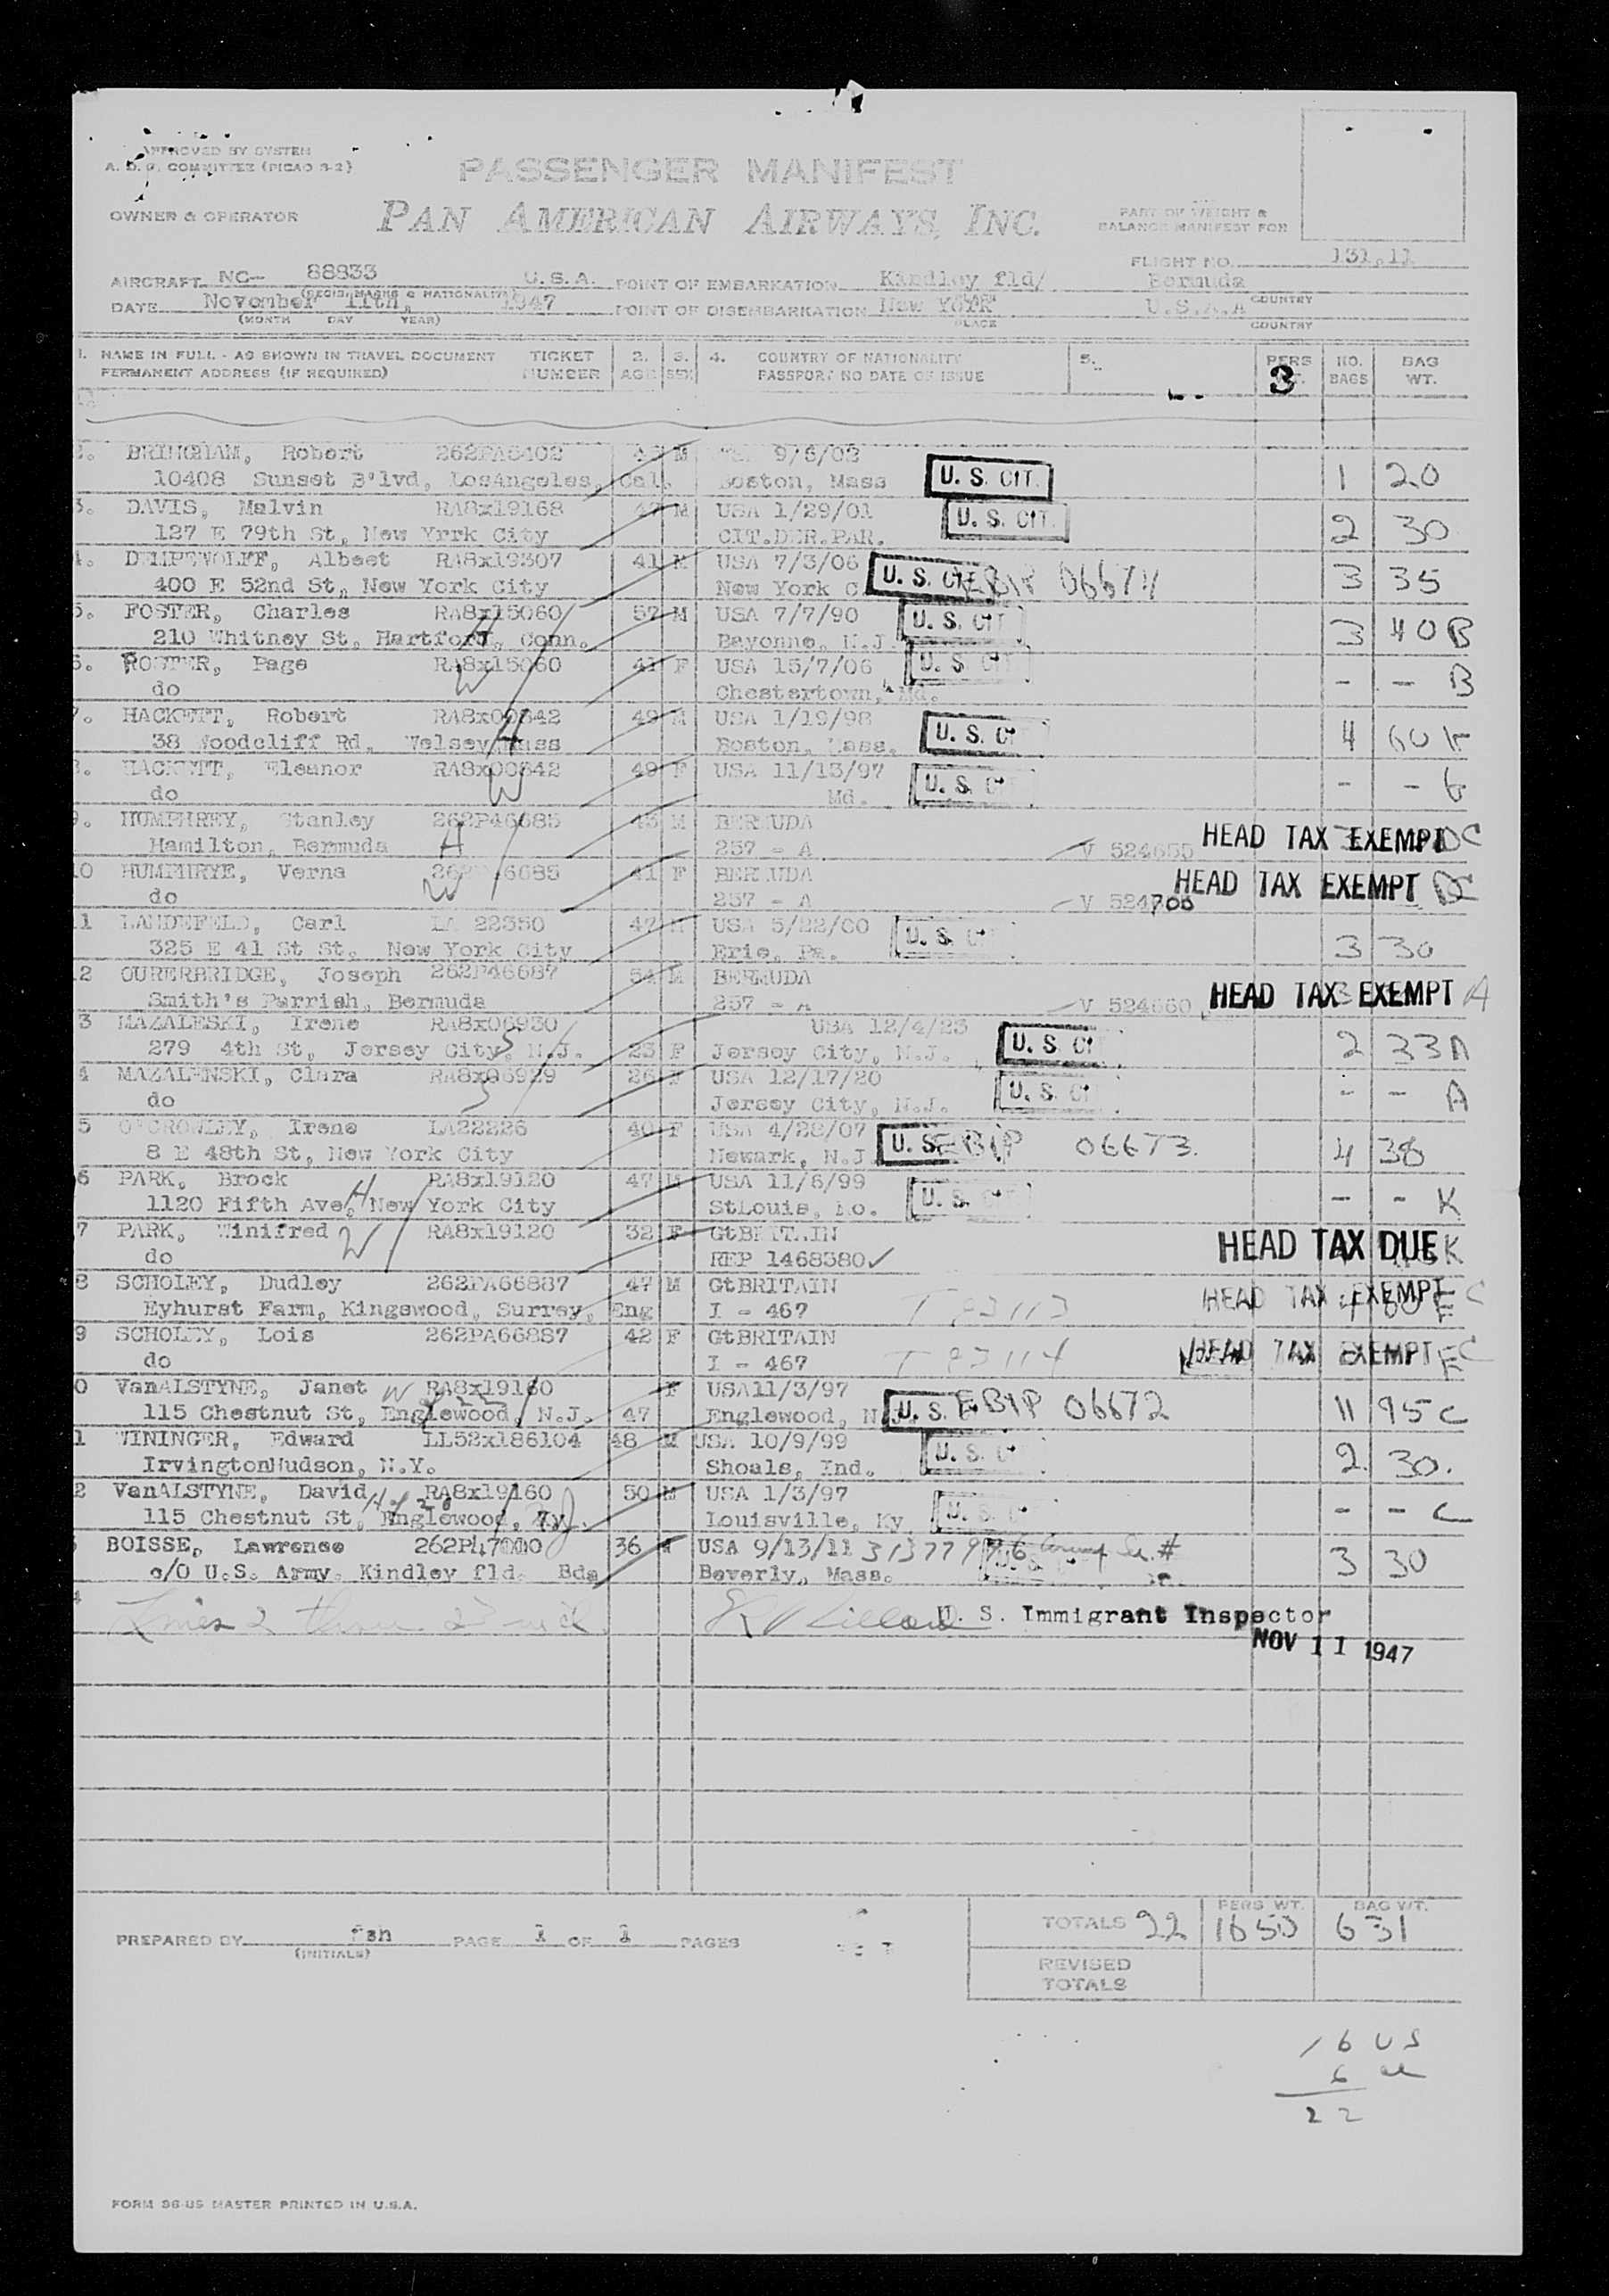 APPROVED BY SYSTEM
A. D. G. COMMITTEE (PICAO 3-2)
PASSENGER MANIFEST
OWNER & OPERATOR PAN AMERICAN AIRWAYS, INC. PART OF WEIGHT &
BALANCE MANIFEST FOR
FLIGHT NO. 131.11
AIRCRAFT NC- 88833 U.S.A. POINT OF EMBARKATION Kindley fld/ Bermuda
DATE November 11th, 1947 POINT OF DISEMBARKATION New York U.S.A.A COUNTRY
(MONTH DAY YEAR) PLACE COUNTRY
1. NAME IN FULL - AS SHOWN IN TRAVEL DOCUMENT TICKET 2. 3. 4. COUNTRY OF NATIONALITY 5. PERS NO. BAG
PERMANENT ADDRESS (IF REQUIRED) NUMBER AGE SEX PASSPORT NO DATE OF ISSUE 3 BAGS WT.
Robert M 9/6/02
10408 Sunset B'lvd, LosAngeles, Cal. Boston, Mass U. S. CIT. 1 20
DAVIS, Malvin RA8x19168 47 M USA 1/29/01 U. S. CIT.
127 E 79th St, New Yrrk City CIT.DER.PAR. 2 30
DEMPEWOLFF, Albeet RA8x19307 41 M USA 7/3/06
400 E 52nd St, New York City New York C U. S. CIT EBIP 06674 3 35
FOSTER, Charles RA8x15060 57 M USA 7/7/90 U. S. CIT
210 Whitney St, Hartford, Conn. H Bayonne, N.J. 3 40 B
Page RA8x15060 41 F USA 15/7/06 U. S. CIT
do W Chestertown, Md. - - B
HACKETT, Robert RA8x00842 49 M USA 1/19/98
38 Woodcliff Rd, Welsey Mass H Boston, Mass. U. S. C 4 60
HACKETT, Eleanor RA8x00842 49 F USA 11/13/97
do W Md. U. S. C - -
HUMPHREY, Stanley 262P46685 43 M BERMUDA
Hamilton, Bermuda H 257 - A V 524655 HEAD TAX EXEMPT DC
10 HUMPHRYE, Verna 41 F BERMUDA
do W 257 - A V 524700 HEAD TAX EXEMPT DC
LANDEFELD, Carl LA 22350 47 M USA 5/22/00
325 E 41 St St, New York City Erie, Pa. U. S. C 3 30
12 OURERBRIDGE, Joseph 262P46687 54 M BERMUDA
Smith's Parrish, Bermuda 257 - A V 524660 HEAD TAX EXEMPT A
3 MAZALESKI, Irene RA8x06930 USA 12/4/23
279 4th St, Jersey City, N.J. 23 F Jersey City, N.J. U. S. CI 2 33 A
4 MAZALENSKI, Clara RA8x06929 26 F USA 12/17/20
do Jersey City, N.J. U. S. CI - - A
5 O'CROWLEY, Irene LA22226 40 F USA 4/28/07
8 E 48th St, New York City Newark, N.J U. S. EBIP 06673. 4 38
6 PARK, Brock RA8x19120 47 M USA 11/6/99
1120 Fifth Ave, New York City H StLouis, Mo. U. S. - - K
7 PARK, Winifred RA8x19120 32 F GtBRITAIN
do W REP 1468380✓ HEAD TAX DUE K
8 SCHOLEY, Dudley 262PA66887 47 M GtBRITAIN
Eyhurst Farm, Kingswood, Surrey, Eng I - 467 T 83113 HEAD TAX EXEMPT
9 SCHOLEY, Lois 262PA66887 42 F GtBRITAIN
do I - 467 T 83114 HEAD TAX EXEMPT
0 VanALSTYNE, Janet W RA8x19160 F USA11/3/97
115 Chestnut St, Englewood, N.J. 47 Englewood, N U. S. EBIP 06672 11 95 C
1 WININGER, Edward LL52x186104 48 M USA 10/9/99
IrvingtonHudson, N.Y. Shoals, Ind. U. S. C 2 30.
2 VanALSTYNE, David RA8x19160 50 M USA 1/3/97
115 Chestnut St, Englewood, Louisville, Ky U. S. C - - C
BOISSE, Lawrence 36 M USA 9/13/11 #
c/O U.S. Army. Kindley fld. Bda Beverly, Mass. 3 30
Lines 2 thru 23 U. S. Immigrant Inspector
NOV 11 1947
TOTALS 22 PERS WT. 1650 BAG WT. 631
PREPARED BY fsh PAGE 1 OF 1 PAGES
(INITIALS)
REVISED
TOTALS
16 US
6 al
22
FORM 36-US MASTER PRINTED IN U.S.A.